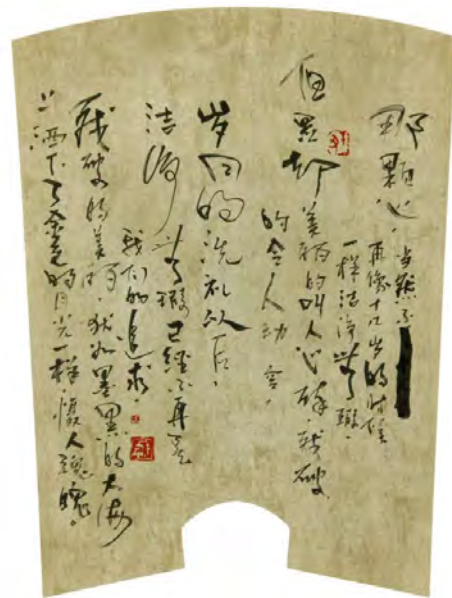 那颗心，当然不
再像十八岁的时候
一样洁净无瑕。
但是却美丽的叫人心碎，残破
的令人动容。
岁月的洗礼以后，
洁净无瑕已经不再是
我们的追求。
残破的美好，犹如墨黑的大海
上洒下了金色的月光一样慑人魂魄。